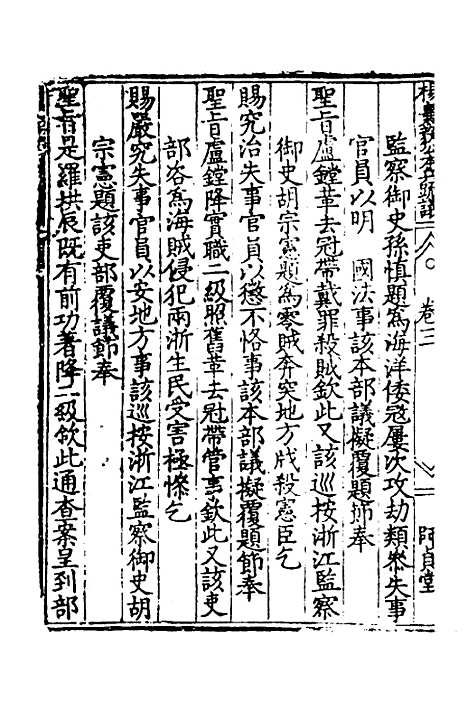 楊襄毅公本兵疏議 卷三 二
監察御史孫慎題為海洋倭寇屢次攻劫類叅失事
官員以明 國法事該本部議擬覆題節奉
聖旨盧鏜革去冠帶戴罪殺賊欽此又該巡按浙江監察
御史胡宗憲題為零賊奔突地方戕殺憲臣乞
賜究治失事官員以懲不恪事該本部議擬覆題節奉
聖旨盧鏜降實職二級照舊革去冠帶管事欽此又該吏
部咨為海賊侵犯兩浙生民受害極慘乞
賜嚴究失事官員以安地方事該巡按浙江監察御史胡
宗憲題該吏部覆議節奉
聖旨是羅拱辰既有前功著降一級欽此通查案呈到部